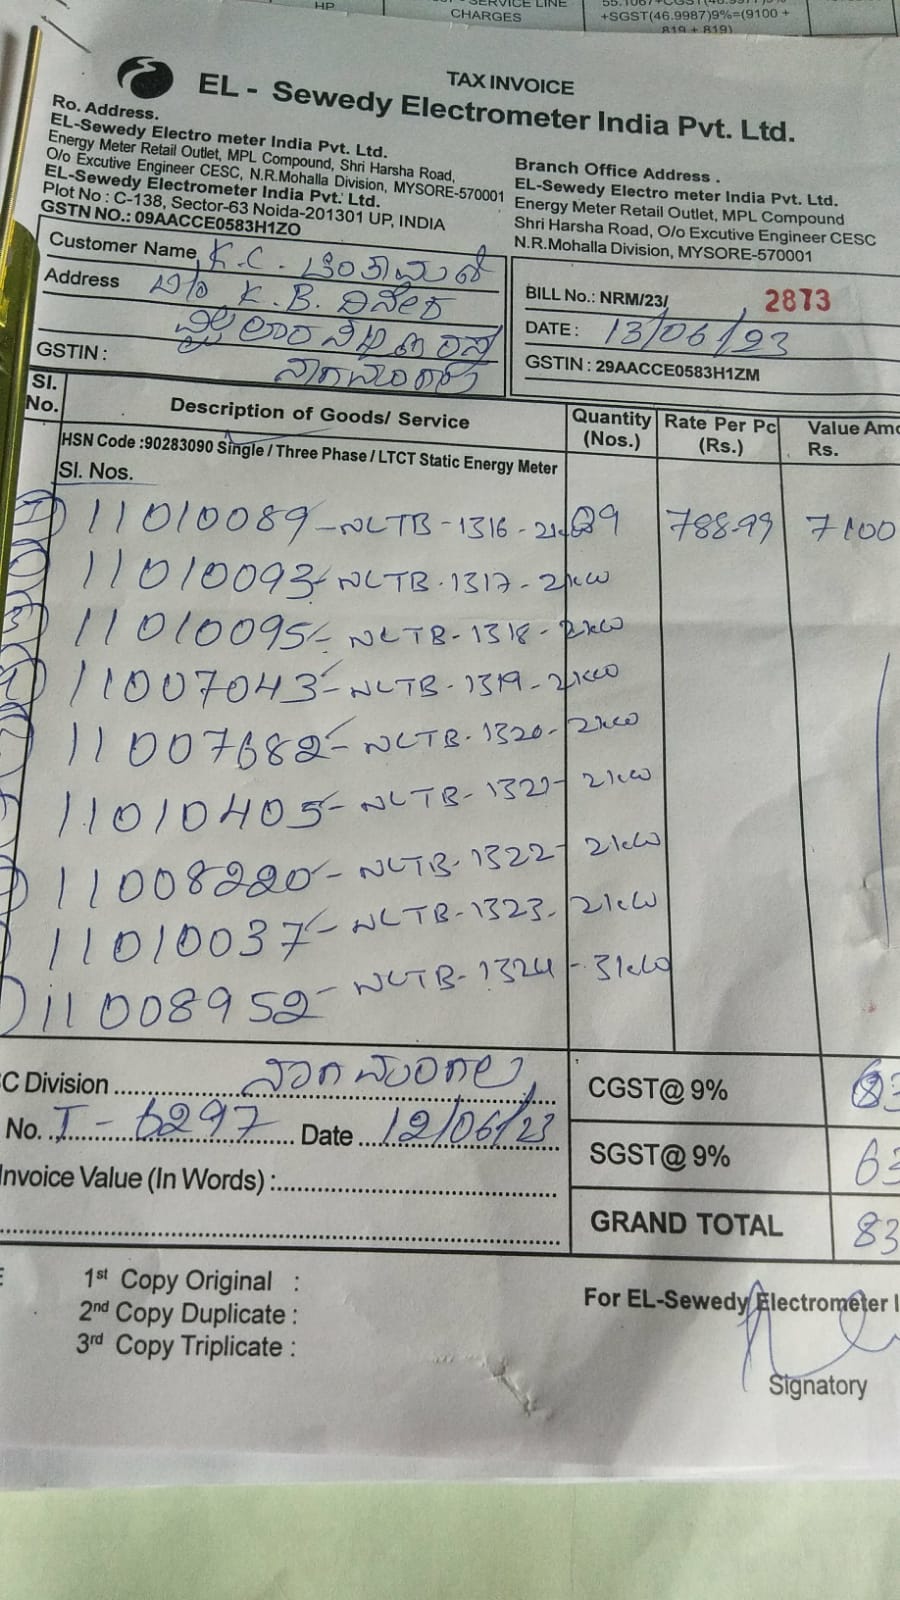 HP
SERVICE LINE
CHARGES
+SGST(46.9987)9%=(9100 +
819 + 819)
TAX INVOICE
EL - Sewedy Electrometer India Pvt. Ltd.
Ro. Address.
EL-Sewedy Electro meter India Pvt. Ltd.
Energy Meter Retail Outlet, MPL Compound, Shri Harsha Road,
O/o Excutive Engineer CESC, N.R.Mohalla Division, MYSORE-570001
EL-Sewedy Electrometer India Pvt. Ltd.
Plot No : C-138, Sector-63 Noida-201301 UP, INDIA
GSTN NO.: 09AACCE0583H1ZO
Branch Office Address .
EL-Sewedy Electro meter India Pvt. Ltd.
Energy Meter Retail Outlet, MPL Compound
Shri Harsha Road, O/o Excutive Engineer CESC
N.R.Mohalla Division, MYSORE-570001
Customer Name K.C.
Address K.B.
GSTIN :
BILL No.: NRM/23/ 2873
DATE : 13/06/23
GSTIN : 29AACCE0583H1ZM
Sl. No. Description of Goods/ Service Quantity (Nos.) Rate Per Pc (Rs.) Value Amo Rs.
HSN Code :90283090 Single / Three Phase / LTCT Static Energy Meter
Sl. Nos.
11010089 - NLTB - 1316 - 09 788.99 7100
11010093 - NLTB - 1317 - 2kw
11010095 - NLTB - 1318 - 2kw
11007043 - NLTB - 1319 - 2kw
11007682 - NLTB - 1320 - 2kw
11010405 - NLTB - 1321 - 2kw
11008220 - NLTB - 1322 - 2kw
11010037 - NLTB - 1323 - 2kw
11008952 - NLTB - 1324 - 3kw
C Division ನಾಗಮಂಗಲ
No. I - 6297 Date 12/06/23
Invoice Value (In Words) :
CGST@ 9% 63
SGST@ 9% 63
GRAND TOTAL 83
1st Copy Original :
2nd Copy Duplicate :
3rd Copy Triplicate :
For EL-Sewedy Electrometer I
Signatory